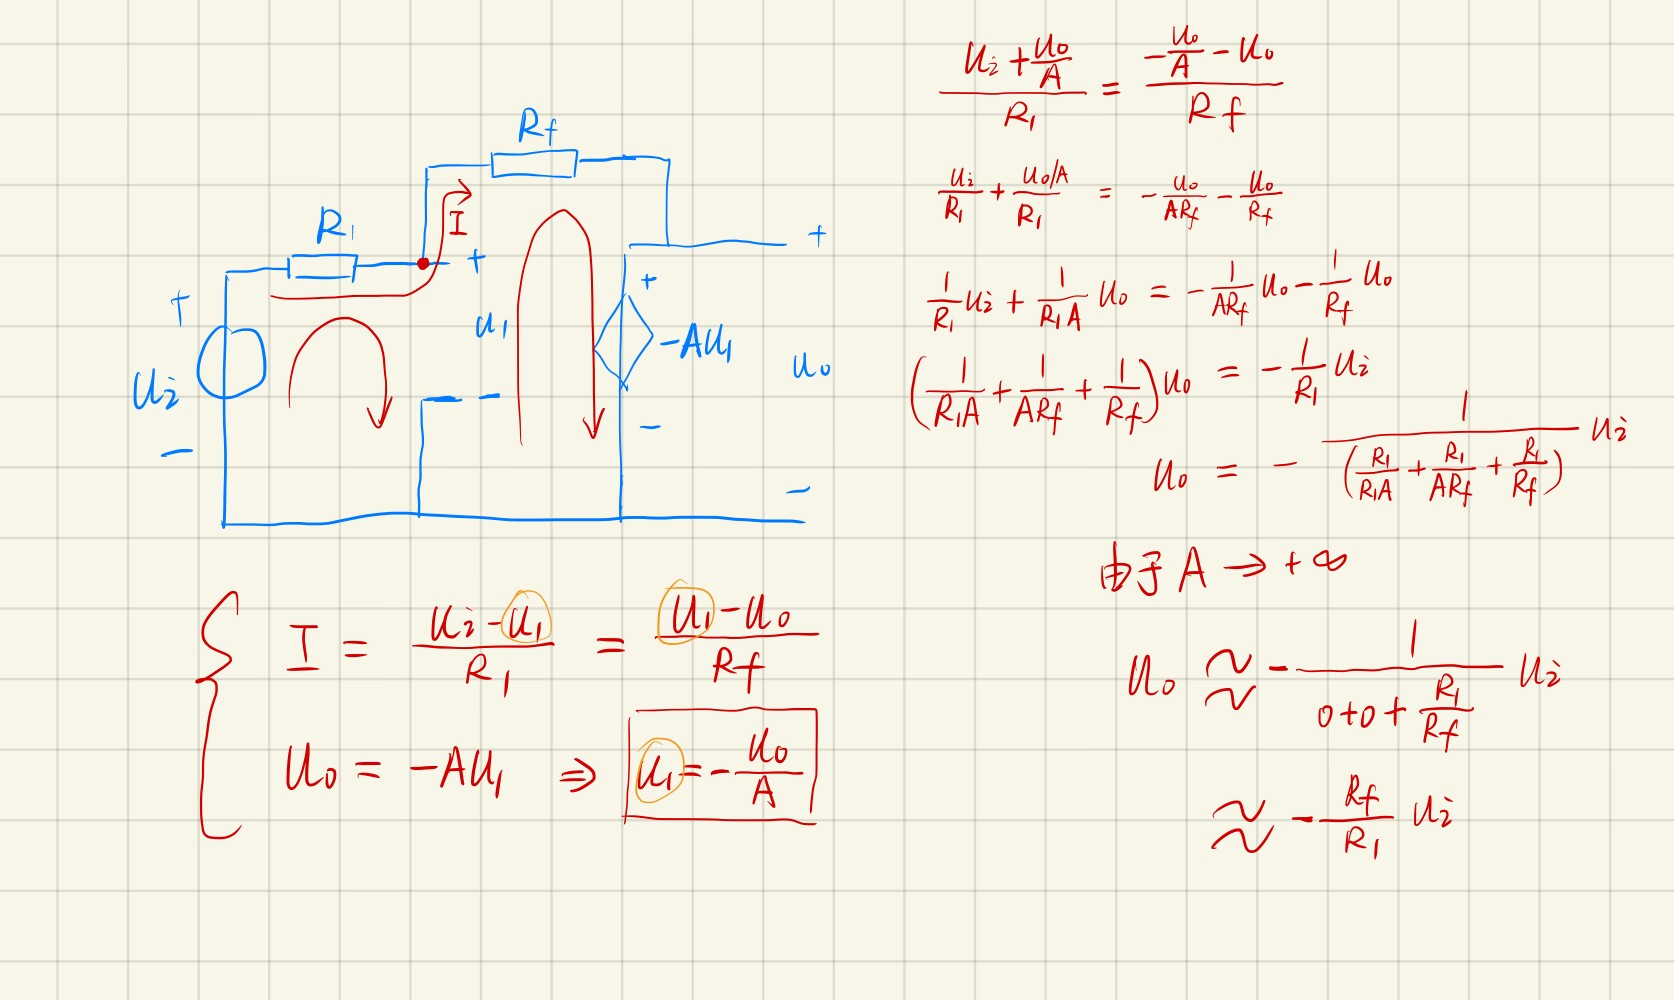 Rf
R₁
I
+
+
+
+
u₁
-Au₁
u₀
uᵢ
-
-
-
-
I = (uᵢ - u₁)/R₁ = (u₁ - u₀)/Rf
u₀ = -Au₁ ⇒ u₁ = -u₀/A
(uᵢ + u₀/A)/R₁ = (-u₀/A - u₀)/Rf
uᵢ/R₁ + (u₀/A)/R₁ = -u₀/(ARf) - u₀/Rf
(1/R₁)uᵢ + (1/(R₁A))u₀ = -(1/(ARf))u₀ - (1/Rf)u₀
(1/(R₁A) + 1/(ARf) + 1/Rf)u₀ = -(1/R₁)uᵢ
u₀ = -1/(R₁/(R₁A) + R₁/(ARf) + R₁/Rf) uᵢ
由于 A → +∞
u₀ ≈ -1/(0+0+R₁/Rf) uᵢ
≈ -(Rf/R₁) uᵢ